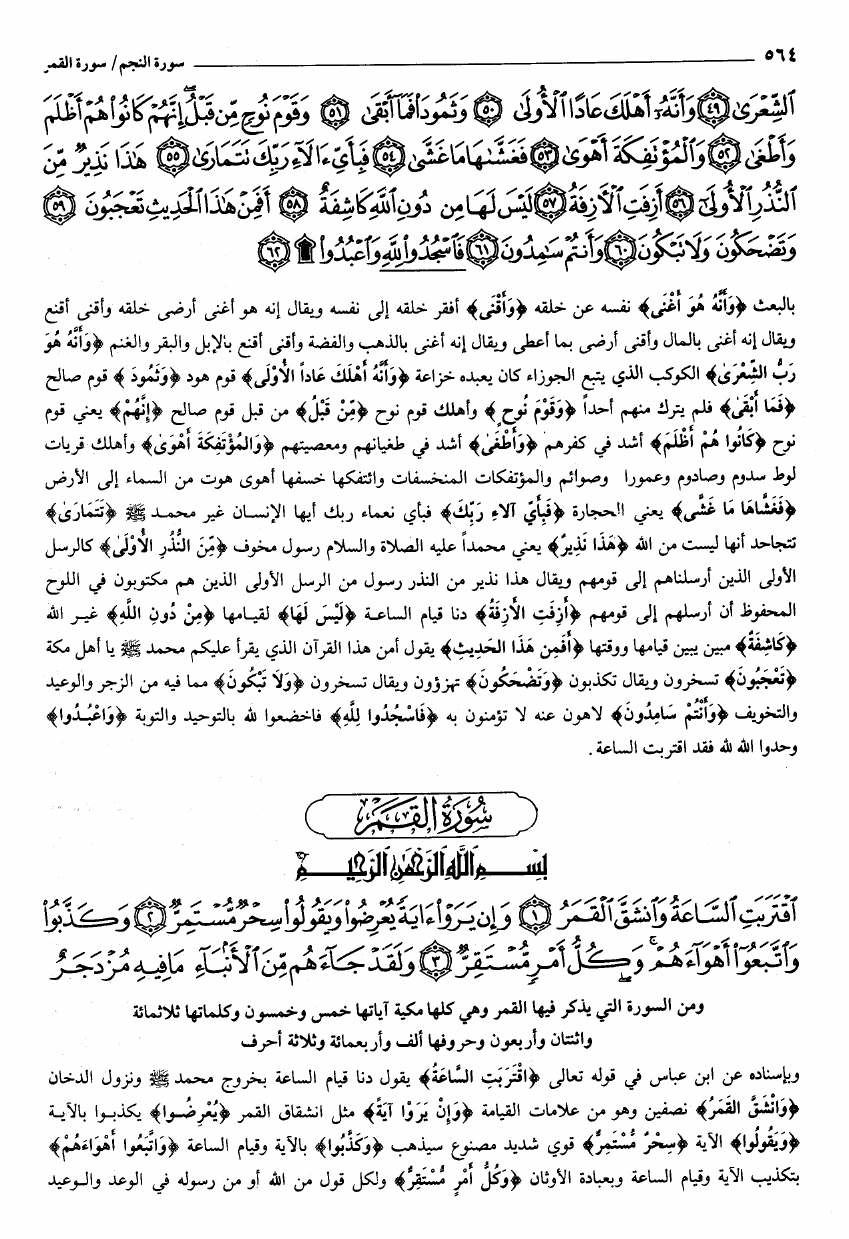 ٥٦٤ سورة النجم/ سورة القمر
ٱلشِّعْرَىٰ ٤٩ وَأَنَّهُۥٓ أَهْلَكَ عَادًا ٱلْأُولَىٰ ٥٠ وَثَمُودَا۟ فَمَآ أَبْقَىٰ ٥١ وَقَوْمَ نُوحٍ مِّن قَبْلُ ۖ إِنَّهُمْ كَانُوا۟ هُمْ أَظْلَمَ
وَأَطْغَىٰ ٥٢ وَٱلْمُؤْتَفِكَةَ أَهْوَىٰ ٥٣ فَغَشَّىٰهَا مَا غَشَّىٰ ٥٤ فَبِأَىِّ ءَالَآءِ رَبِّكَ تَتَمَارَىٰ ٥٥ هَٰذَا نَذِيرٌ مِّنَ
ٱلنُّذُرِ ٱلْأُولَىٰٓ ٥٦ أَزِفَتِ ٱلْءَازِفَةُ ٥٧ لَيْسَ لَهَا مِن دُونِ ٱللَّهِ كَاشِفَةٌ ٥٨ أَفَمِنْ هَٰذَا ٱلْحَدِيثِ تَعْجَبُونَ ٥٩
وَتَضْحَكُونَ وَلَا تَبْكُونَ ٦٠ وَأَنتُمْ سَٰمِدُونَ ٦١ فَٱسْجُدُوا۟ لِلَّهِ وَٱعْبُدُوا۟ ۩ ٦٢
بالبعث ﴿وَأَنَّهُ هُوَ أَغْنَى﴾ نفسه عن خلقه ﴿وَأَقْنَى﴾ أفقر خلقه إلى نفسه ويقال إنه هو أغنى أرضى خلقه وأقنى أقنع
ويقال إنه أغنى بالمال وأقنى أرضى بما أعطى ويقال إنه أغنى بالذهب والفضة وأقنى أقنع بالإبل والبقر والغنم ﴿وَأَنَّهُ هُوَ
رَبُّ الشِّعْرَىٰ﴾ الكوكب الذي يتبع الجوزاء كان يعبده خزاعة ﴿وَأَنَّهُ أَهْلَكَ عَاداً الأُوْلَى﴾ قوم هود ﴿وَثَمُودَ﴾ قوم صالح
﴿فَمَا أَبْقَىٰ﴾ فلم يترك منهم أحداً ﴿وَقَوْمَ نُوحٍ﴾ وأهلك قوم نوح ﴿مِّنْ قَبْلُ﴾ من قبل قوم صالح ﴿إِنَّهُمْ﴾ يعني قوم
نوح ﴿كَانُوا هُمْ أَظْلَمَ﴾ أشد في كفرهم ﴿وَأَطْغَىٰ﴾ أشد في طغيانهم ومعصيتهم ﴿وَالمُؤْتَفِكَةَ أَهْوَىٰ﴾ وأهلك قريات
لوط سدوم وصادوم وعمورا وصوائم والمؤتفكات المنخسفات وائتفكها خسفها أهوى هوت من السماء إلى الأرض
﴿فَغَشَّاهَا مَا غَشَّى﴾ يعني الحجارة ﴿فَبِأَيِّ آلاءِ رَبِّكَ﴾ فبأي نعماء ربك أيها الإنسان غير محمد ﷺ ﴿تَتَمَارَىٰ﴾
تتجاحد أنها ليست من الله ﴿هَذَا نَذِيرٌ﴾ يعني محمداً عليه الصلاة والسلام رسول مخوف ﴿مِّنَ النُّذُرِ الأُوْلَىٰ﴾ كالرسل
الأولى الذين أرسلناهم إلى قومهم ويقال هذا نذير من النذر رسول من الرسل الأولى الذين هم مكتوبون في اللوح
المحفوظ أن أرسلهم إلى قومهم ﴿أَزِفَتِ الآزِفَةُ﴾ دنا قيام الساعة ﴿لَيْسَ لَهَا﴾ لقيامها ﴿مِنْ دُونِ اللَّهِ﴾ غير الله
﴿كَاشِفَةٌ﴾ مبين يبين قيامها ووقتها ﴿أَفَمِن هَذَا الحَدِيثِ﴾ يقول أمن هذا القرآن الذي يقرأ عليكم محمد ﷺ يا أهل مكة
﴿تَعْجَبُونَ﴾ تسخرون ويقال تكذبون ﴿وَتَضْحَكُونَ﴾ تهزؤون ويقال تسخرون ﴿وَلاَ تَبْكُونَ﴾ مما فيه من الزجر والوعيد
والتخويف ﴿وَأَنْتُمْ سَامِدُونَ﴾ لاهون عنه لا تؤمنون به ﴿فَاسْجُدُوا لِلَّهِ﴾ فاخضعوا لله بالتوحيد والتوبة ﴿وَاعْبُدُوا﴾
وحدوا الله لله فقد اقتربت الساعة.
سُورَةُ القَمَرِ
بِسْمِ اللَّهِ الرَّحْمَٰنِ الرَّحِيمِ
ٱقْتَرَبَتِ ٱلسَّاعَةُ وَٱنشَقَّ ٱلْقَمَرُ ١ وَإِن يَرَوْا۟ ءَايَةً يُعْرِضُوا۟ وَيَقُولُوا۟ سِحْرٌ مُّسْتَمِرٌّ ٢ وَكَذَّبُوا۟
وَٱتَّبَعُوٓا۟ أَهْوَآءَهُمْ ۚ وَكُلُّ أَمْرٍ مُّسْتَقِرٌّ ٣ وَلَقَدْ جَآءَهُم مِّنَ ٱلْأَنۢبَآءِ مَا فِيهِ مُزْدَجَرٌ
ومن السورة التي يذكر فيها القمر وهي كلها مكية آياتها خمس وخمسون وكلماتها ثلاثمائة
واثنتان وأربعون وحروفها ألف وأربعمائة وثلاثة أحرف
وبإسناده عن ابن عباس في قوله تعالى ﴿اقْتَرَبَتِ السَّاعَةُ﴾ يقول دنا قيام الساعة بخروج محمد ﷺ ونزول الدخان
﴿وَانْشَقَّ القَمَرُ﴾ نصفين وهو من علامات القيامة ﴿وَإِنْ يَرَوْا آيَةً﴾ مثل انشقاق القمر ﴿يُعْرِضُوا﴾ يكذبوا بالآية
﴿وَيَقُولُوا﴾ الآية ﴿سِحْرٌ مُّسْتَمِرٌّ﴾ قوي شديد مصنوع سيذهب ﴿وَكَذَّبُوا﴾ بالآية وقيام الساعة ﴿وَاتَّبَعُوا أَهْوَاءَهُمْ﴾
بتكذيب الآية وقيام الساعة وبعبادة الأوثان ﴿وَكُلُّ أَمْرٍ مُّسْتَقِرٌّ﴾ ولكل قول من الله أو من رسوله في الوعد والوعيد